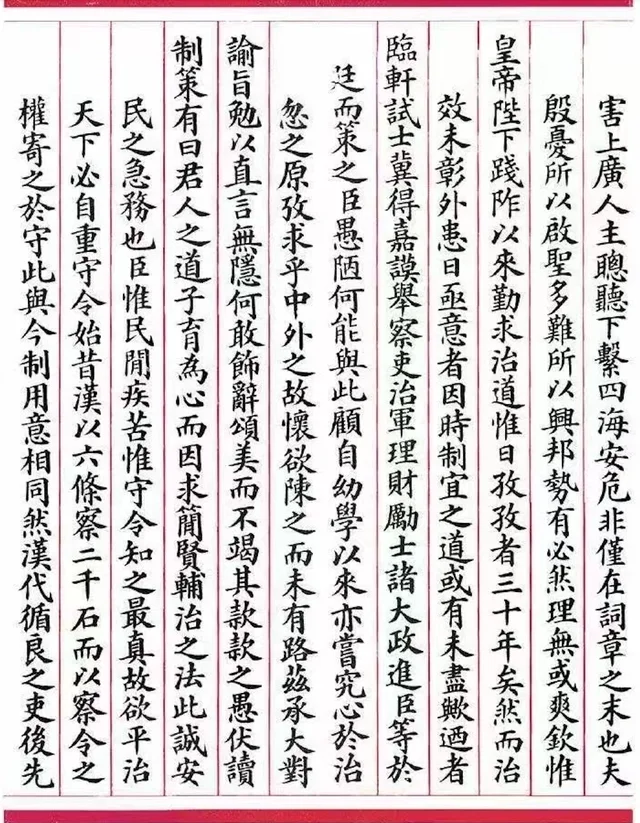 害上廣人主聰聽下繫四海安危非僅在詞章之末也夫
殷憂所以啟聖多難所以興邦勢有必然理無或爽欽惟
皇帝陛下踐阼以來勤求治道惟日孜孜者三十年矣然而治
效未彰外患日亟意者因時制宜之道或有未盡歟迺者
臨軒試士冀得嘉謨舉察吏治軍理財勵士諸大政進臣等於
廷而策之臣愚陋何能與此顧自幼學以來亦嘗究心於治
忽之原攷求乎中外之故懷欲陳之而未有路茲承大對
諭旨勉以直言無隱何敢飾辭頌美而不竭其款款之愚伏讀
制策有曰君人之道子育為心而因求簡賢輔治之法此誠安
民之急務也臣惟民閒疾苦惟守令知之最真故欲平治
天下必自重守令始昔漢以六條察二千石而以察令之
權寄之於守此與今制用意相同然漢代循良之吏後先